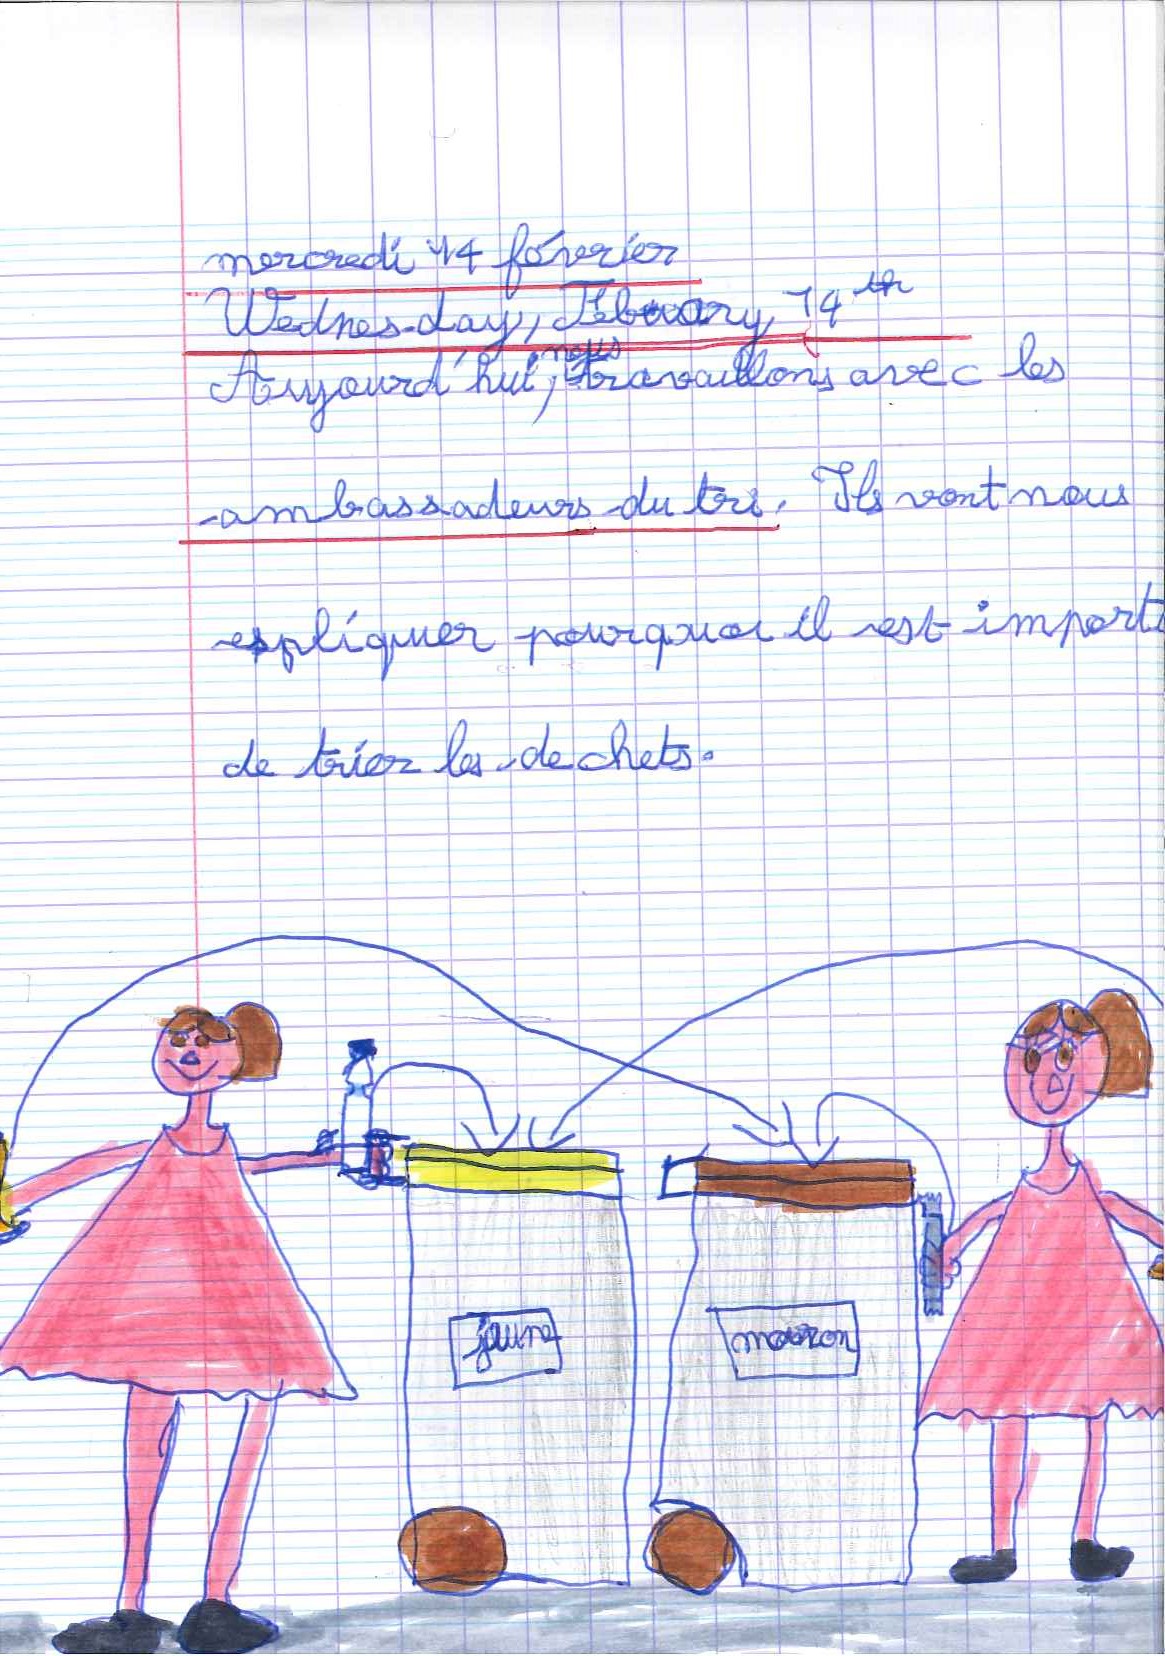 mercredi 14 février
Wednesday, February, 14th
Aujourd'hui, nous travaillons avec les
ambassadeurs du tri. Ils vont nous
expliquer pourquoi il est import
de trier les dechets.
jaune
marron